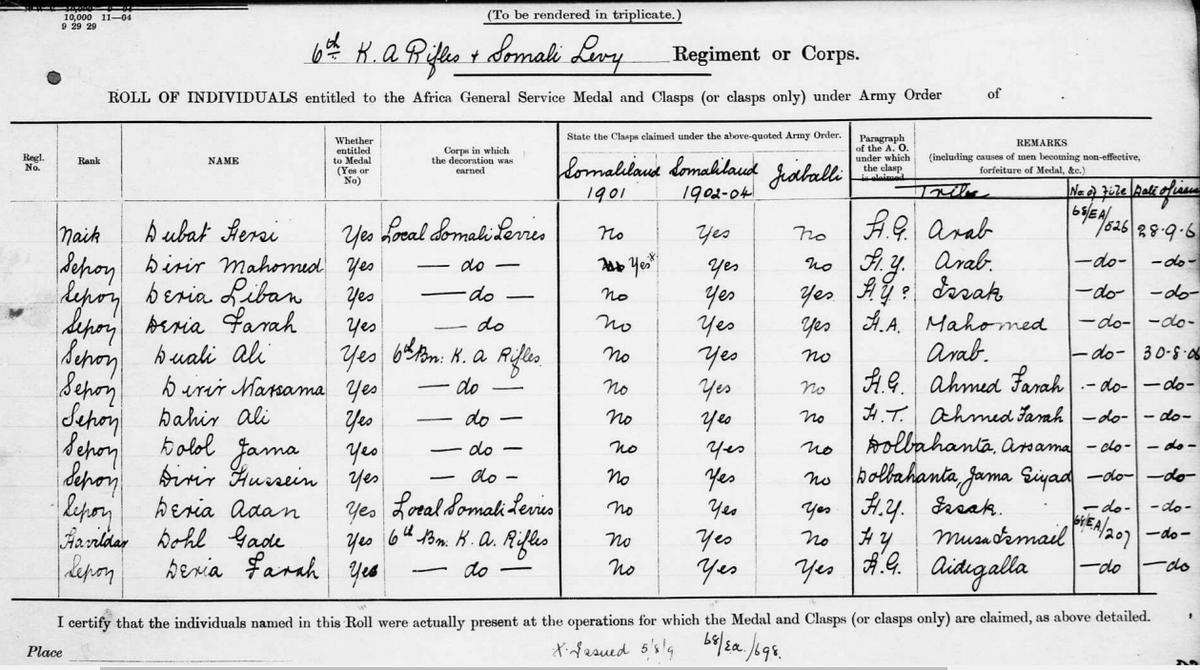 10,000 11—04
9 29 29
(To be rendered in triplicate.)
6th K. A Rifles + Somali Levy Regiment or Corps.
ROLL OF INDIVIDUALS entitled to the Africa General Service Medal and Clasps (or clasps only) under Army Order of .
Regl. No. Rank NAME Whether entitled to Medal (Yes or No) Corps in which the decoration was earned State the Clasps claimed under the above-quoted Army Order. Paragraph of the A. O. under which the clasp is claimed REMARKS (including causes of men becoming non-effective, forfeiture of Medal, &c.)
Somaliland 1901 Somaliland 1902-04 Jidballi Tribe No. of File Date of issue
Naik Dubat Hersi Yes Local Somali Levies No Yes No H.G. Arab 68/EA/626 28.9.6
Sepoy Dirir Mahomed Yes — do — No Yes x Yes No H.Y. Arab. —do— —do—
Sepoy Deria Liban Yes — do — No Yes Yes H.Y? Issak —do— —do—
Sepoy Deria Farah Yes — do No Yes Yes H.A. Mahomed —do— —do—
Sepoy Duali Ali Yes 6th Bn: K. A Rifles. No Yes No Arab. —do— 30.8.06
Sepoy Dirir Warsama Yes — do — No Yes No H.G. Ahmed Farah —do— —do—
Sepoy Dahir Ali Yes — do — No Yes No H.T. Ahmed Farah —do— —do—
Sepoy Dolol Jama Yes — do — No Yes No Dolbahanta, Arsama —do— —do—
Sepoy Dirir Hussein Yes — do — No Yes No Dolbahanta, Jama Siyad —do— —do—
Sepoy Deria Adan Yes Local Somali Levies No Yes Yes H.Y. Issak. —do— —do—
Havildar Dohl Gade Yes 6th Bn. K. A. Rifles No Yes No H Y Musa Ismail 68/EA/207 —do—
Sepoy Deria Farah Yes — do — No Yes Yes H.G. Aidegalla —do —do
I certify that the individuals named in this Roll were actually present at the operations for which the Medal and Clasps (or clasps only) are claimed, as above detailed.
Place x Issued 5/8/9 68/Ea./698.